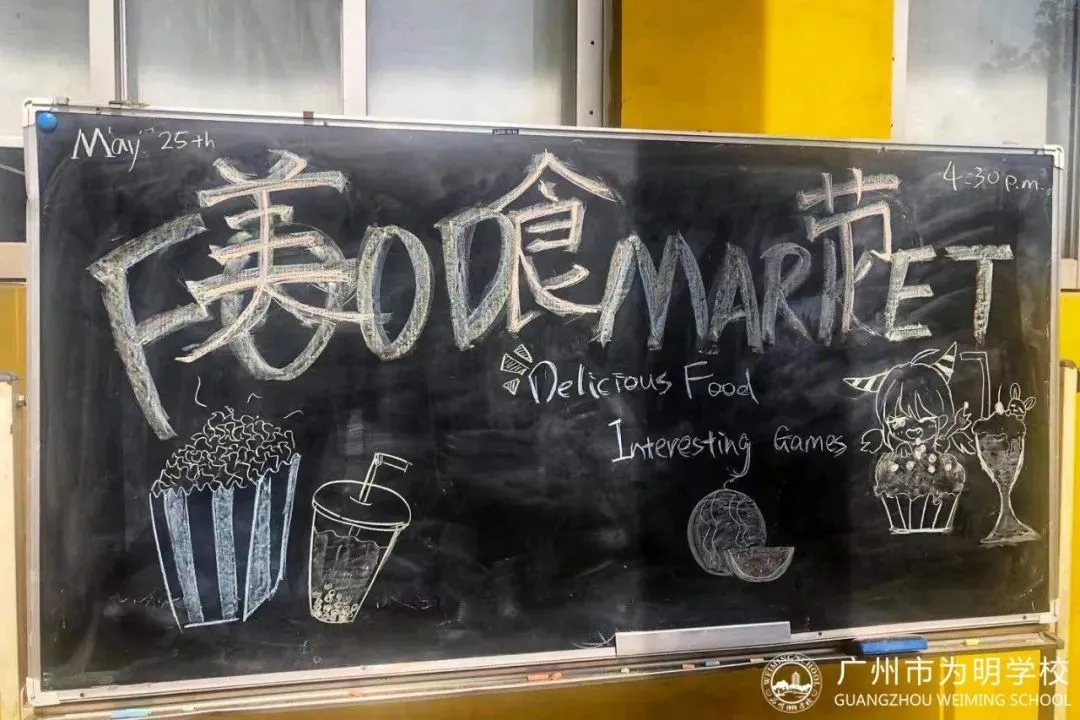 May 25th
4:30 p.m.
美食节
FOOD MARKET
Delicious Food
Interesting Games
广州市为明学校
GUANGZHOU WEIMING SCHOOL